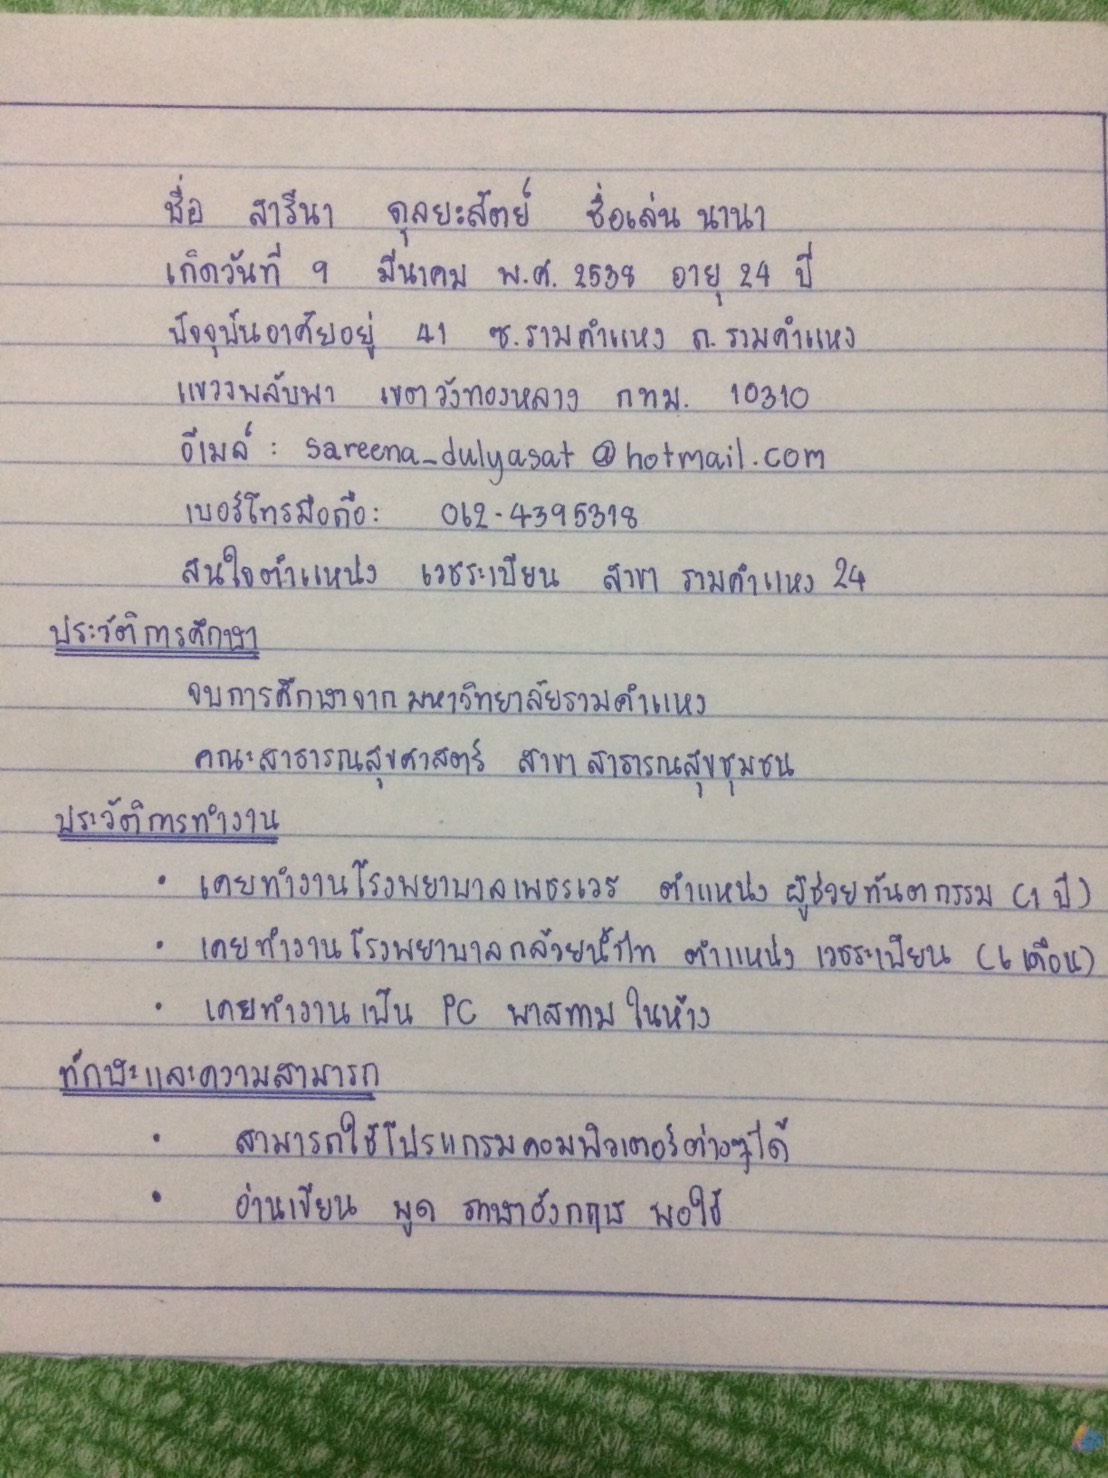 ชื่อ สารีนา ดุลยะสัตย์ ชื่อเล่น นานา
เกิดวันที่ 9 มีนาคม พ.ศ. 2538 อายุ 24 ปี
ปัจจุบันอาศัยอยู่ 41 ซ.รามคำแหง ถ.รามคำแหง
แขวงพลับพลา เขตวังทองหลาง กทม. 10310
อีเมล์ : sareena_dulyasat@hotmail.com
เบอร์โทรมือถือ: 062-4395318
สนใจตำแหน่ง เวชระเบียน สาขา รามคำแหง 24
ประวัติการศึกษา
จบการศึกษาจาก มหาวิทยาลัยรามคำแหง
คณะสาธารณสุขศาสตร์ สาขา สาธารณสุขชุมชน
ประวัติการทำงาน
• เคยทำงานโรงพยาบาลเพชรเวช ตำแหน่ง ผู้ช่วยทันตกรรม (1 ปี)
• เคยทำงานโรงพยาบาลกล้วยน้ำไท ตำแหน่ง เวชระเบียน (6 เดือน)
• เคยทำงานเป็น PC พาสทาม ในห้าง
ทักษะและความสามารถ
• สามารถใช้โปรแกรมคอมพิวเตอร์ต่างๆได้
• อ่านเขียน พูด ภาษาอังกฤษ พอใช้